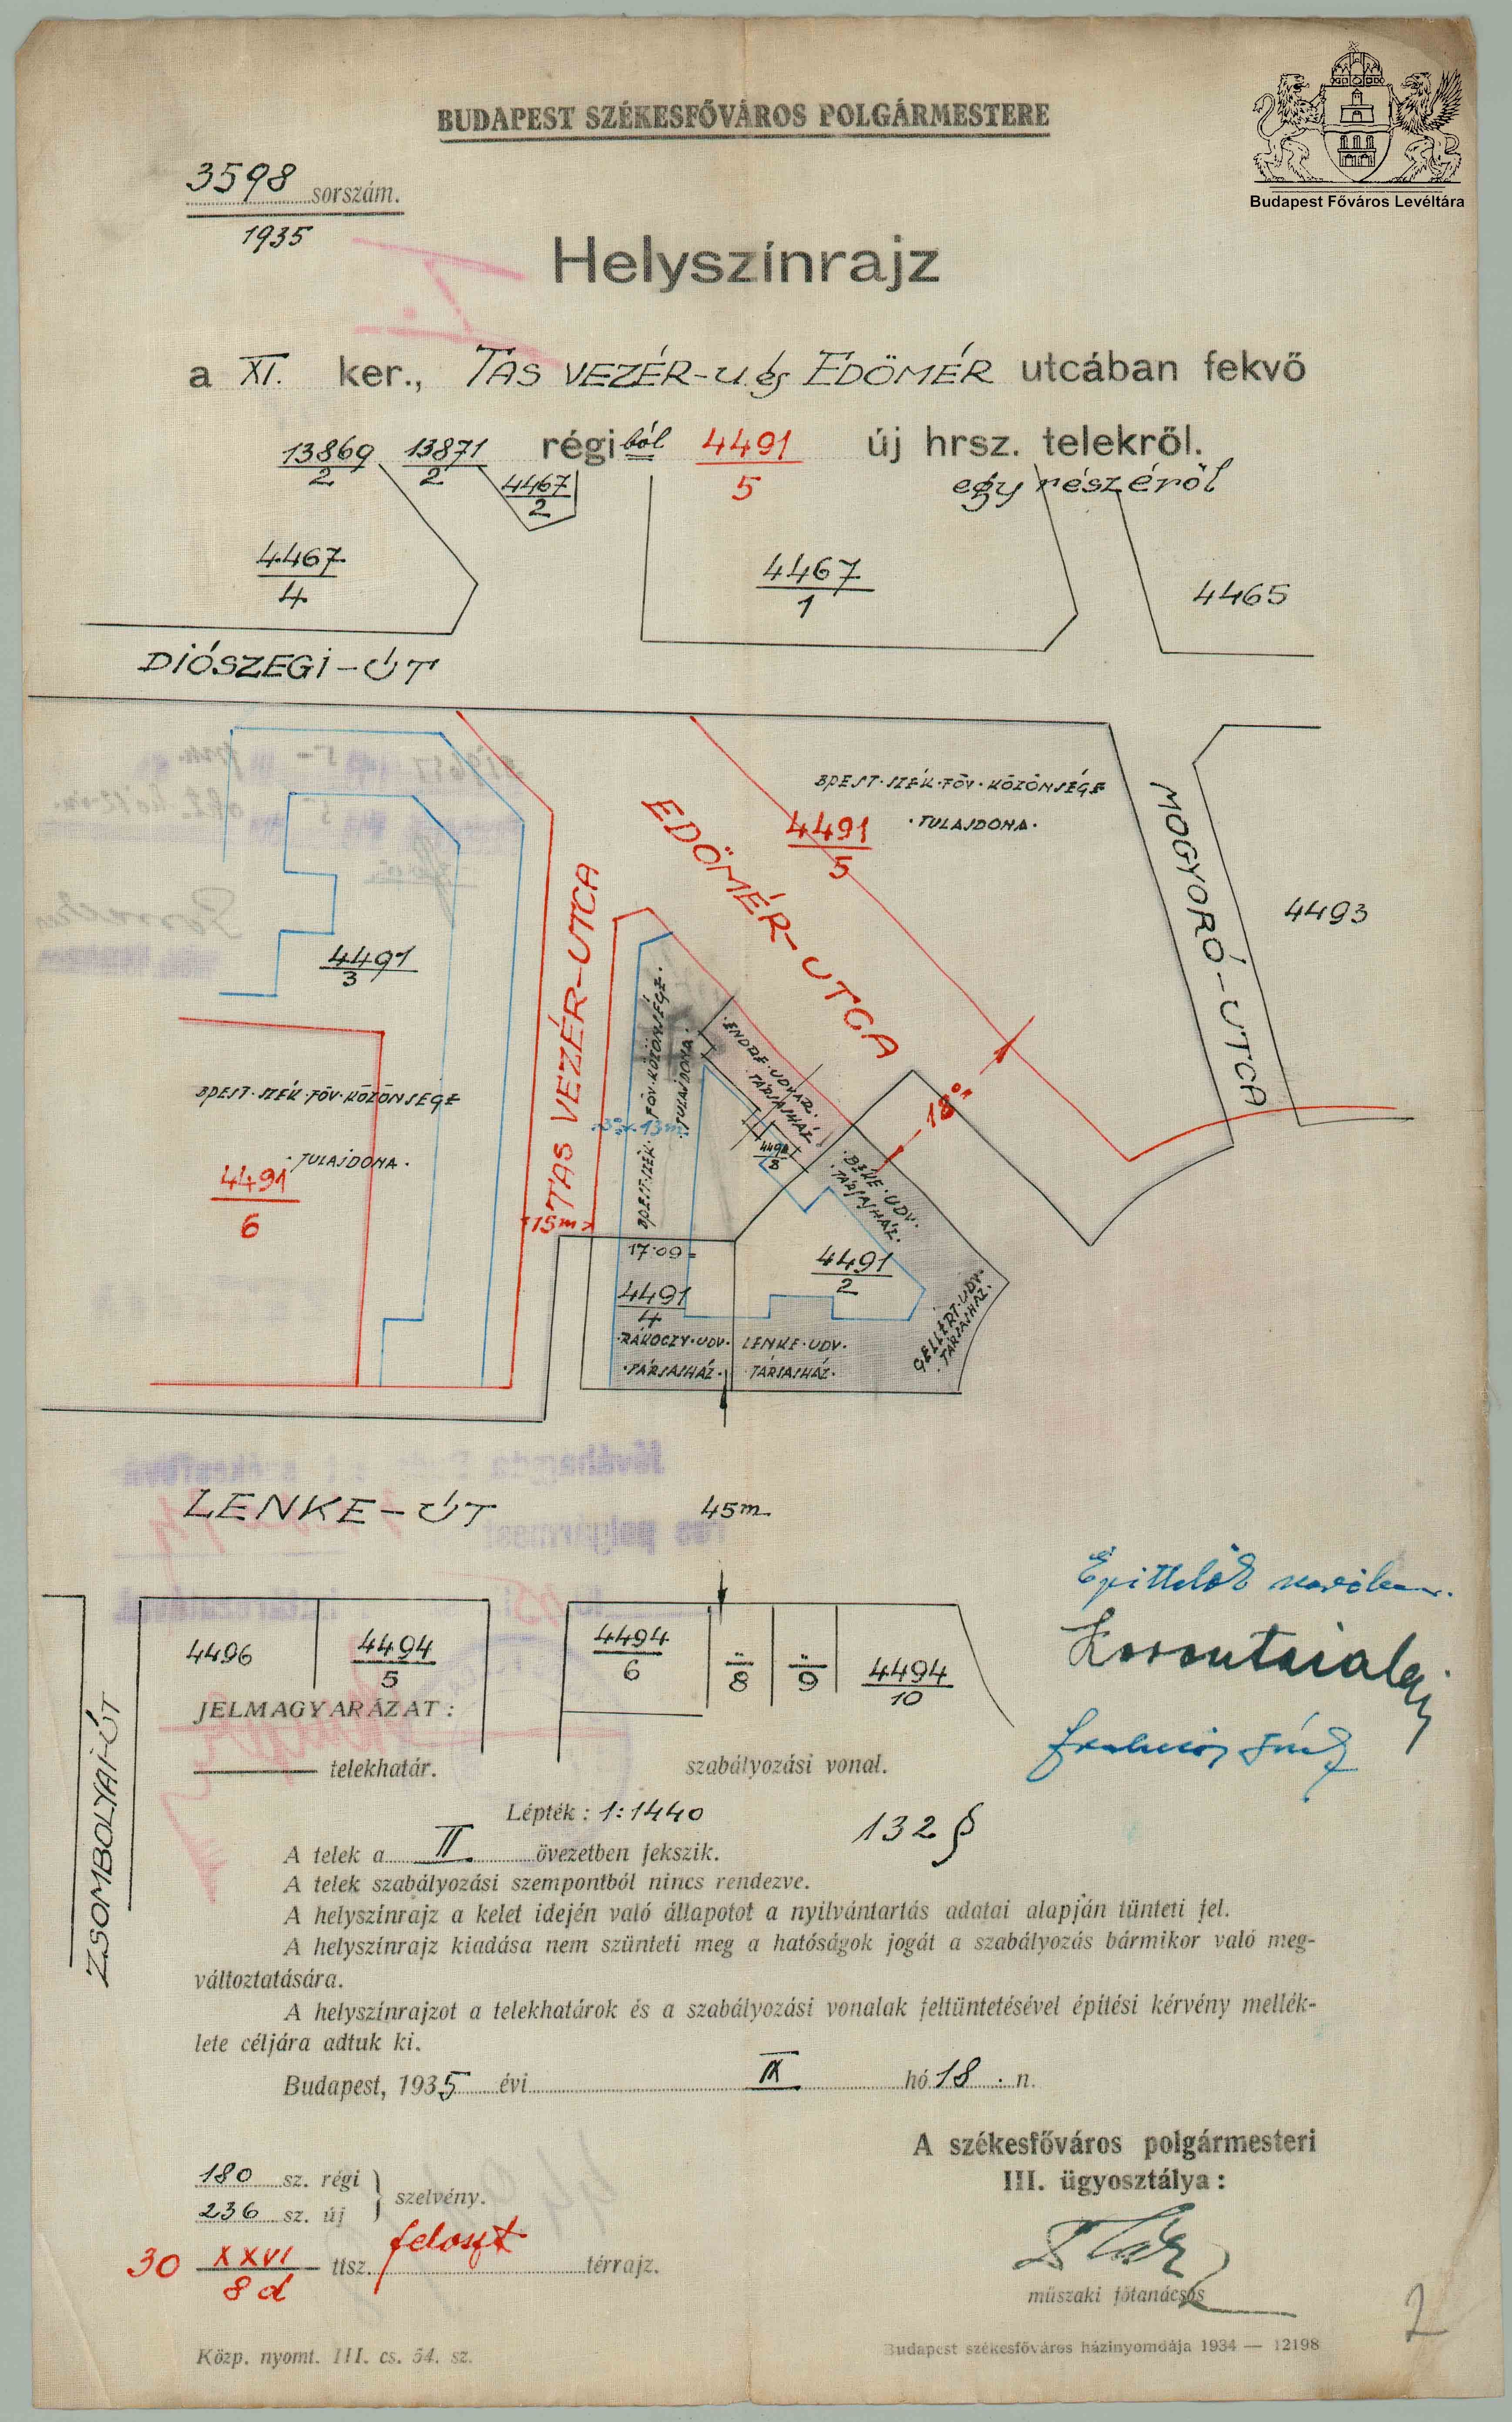 BUDAPEST SZÉKESFŐVÁROS POLGÁRMESTERE
Budapest Főváros Levéltára
3598 sorszám.
1935
I.
Helyszínrajz
a XI. ker., TAS VEZÉR-u. és EDÖMÉR utcában fekvő
13869/2 13871/2 régiből 4491/5 új hrsz. telekről.
egy részéről
4467/2
4467/4
4467/1
4465
DIÓSZEGI-ÚT
BPEST·SZÉK·FŐV·KÖZÖNSÉGE
·TULAJDONA·
4491/5
EDÖMÉR-UTCA
MOGYORÓ-UTCA
4493
4491/3
TAS VEZÉR-UTCA
BPEST·SZÉK·FŐV·KÖZÖNSÉGE
·TULAJDONA·
·ENDRE·UDVAR·
TÁRSASHÁZ
BPEST·SZÉK·FÖV·KÖZÖNSÉGE
·TULAJDONA·
4491/6
15m
13m
·BIKE·UDV·
·TÁRSASHÁZ·
17·09
4491/4
4491/2
·RÁKOCZY·UDV·
·TÁRSASHÁZ·
LENKE·UDV·
TÁRSASHÁZ·
GELLÉRT·UDV·
·TÁRSASHÁZ·
LENKE-ÚT
45m
Építtetők
4496
4494/5
4494/6
"/8
"/9
4494/10
ZSOMBOLYAI-ÚT
JELMAGYARÁZAT:
telekhatár.
szabályozási vonal.
Lépték: 1:1440
132 §
A telek a II. övezetben fekszik.
A telek szabályozási szempontból nincs rendezve.
A helyszínrajz a kelet idején való állapotot a nyilvántartás adatai alapján tünteti fel.
A helyszínrajz kiadása nem szünteti meg a hatóságok jogát a szabályozás bármikor való meg-
változtatására.
A helyszínrajzot a telekhatárok és a szabályozási vonalak feltüntetésével építési kérvény mellék-
lete céljára adtuk ki.
Budapest, 1935 évi IX hó 18. n.
A székesfőváros polgármesteri
III. ügyosztálya:
180 sz. régi
236 sz. új
szelvény.
30 XXVI/8d ttsz. feloszt térrajz.
műszaki főtanácsos
2
Közp. nyomt. III. cs. 54. sz.
Budapest székesfőváros házinyomdája 1934 — 12198